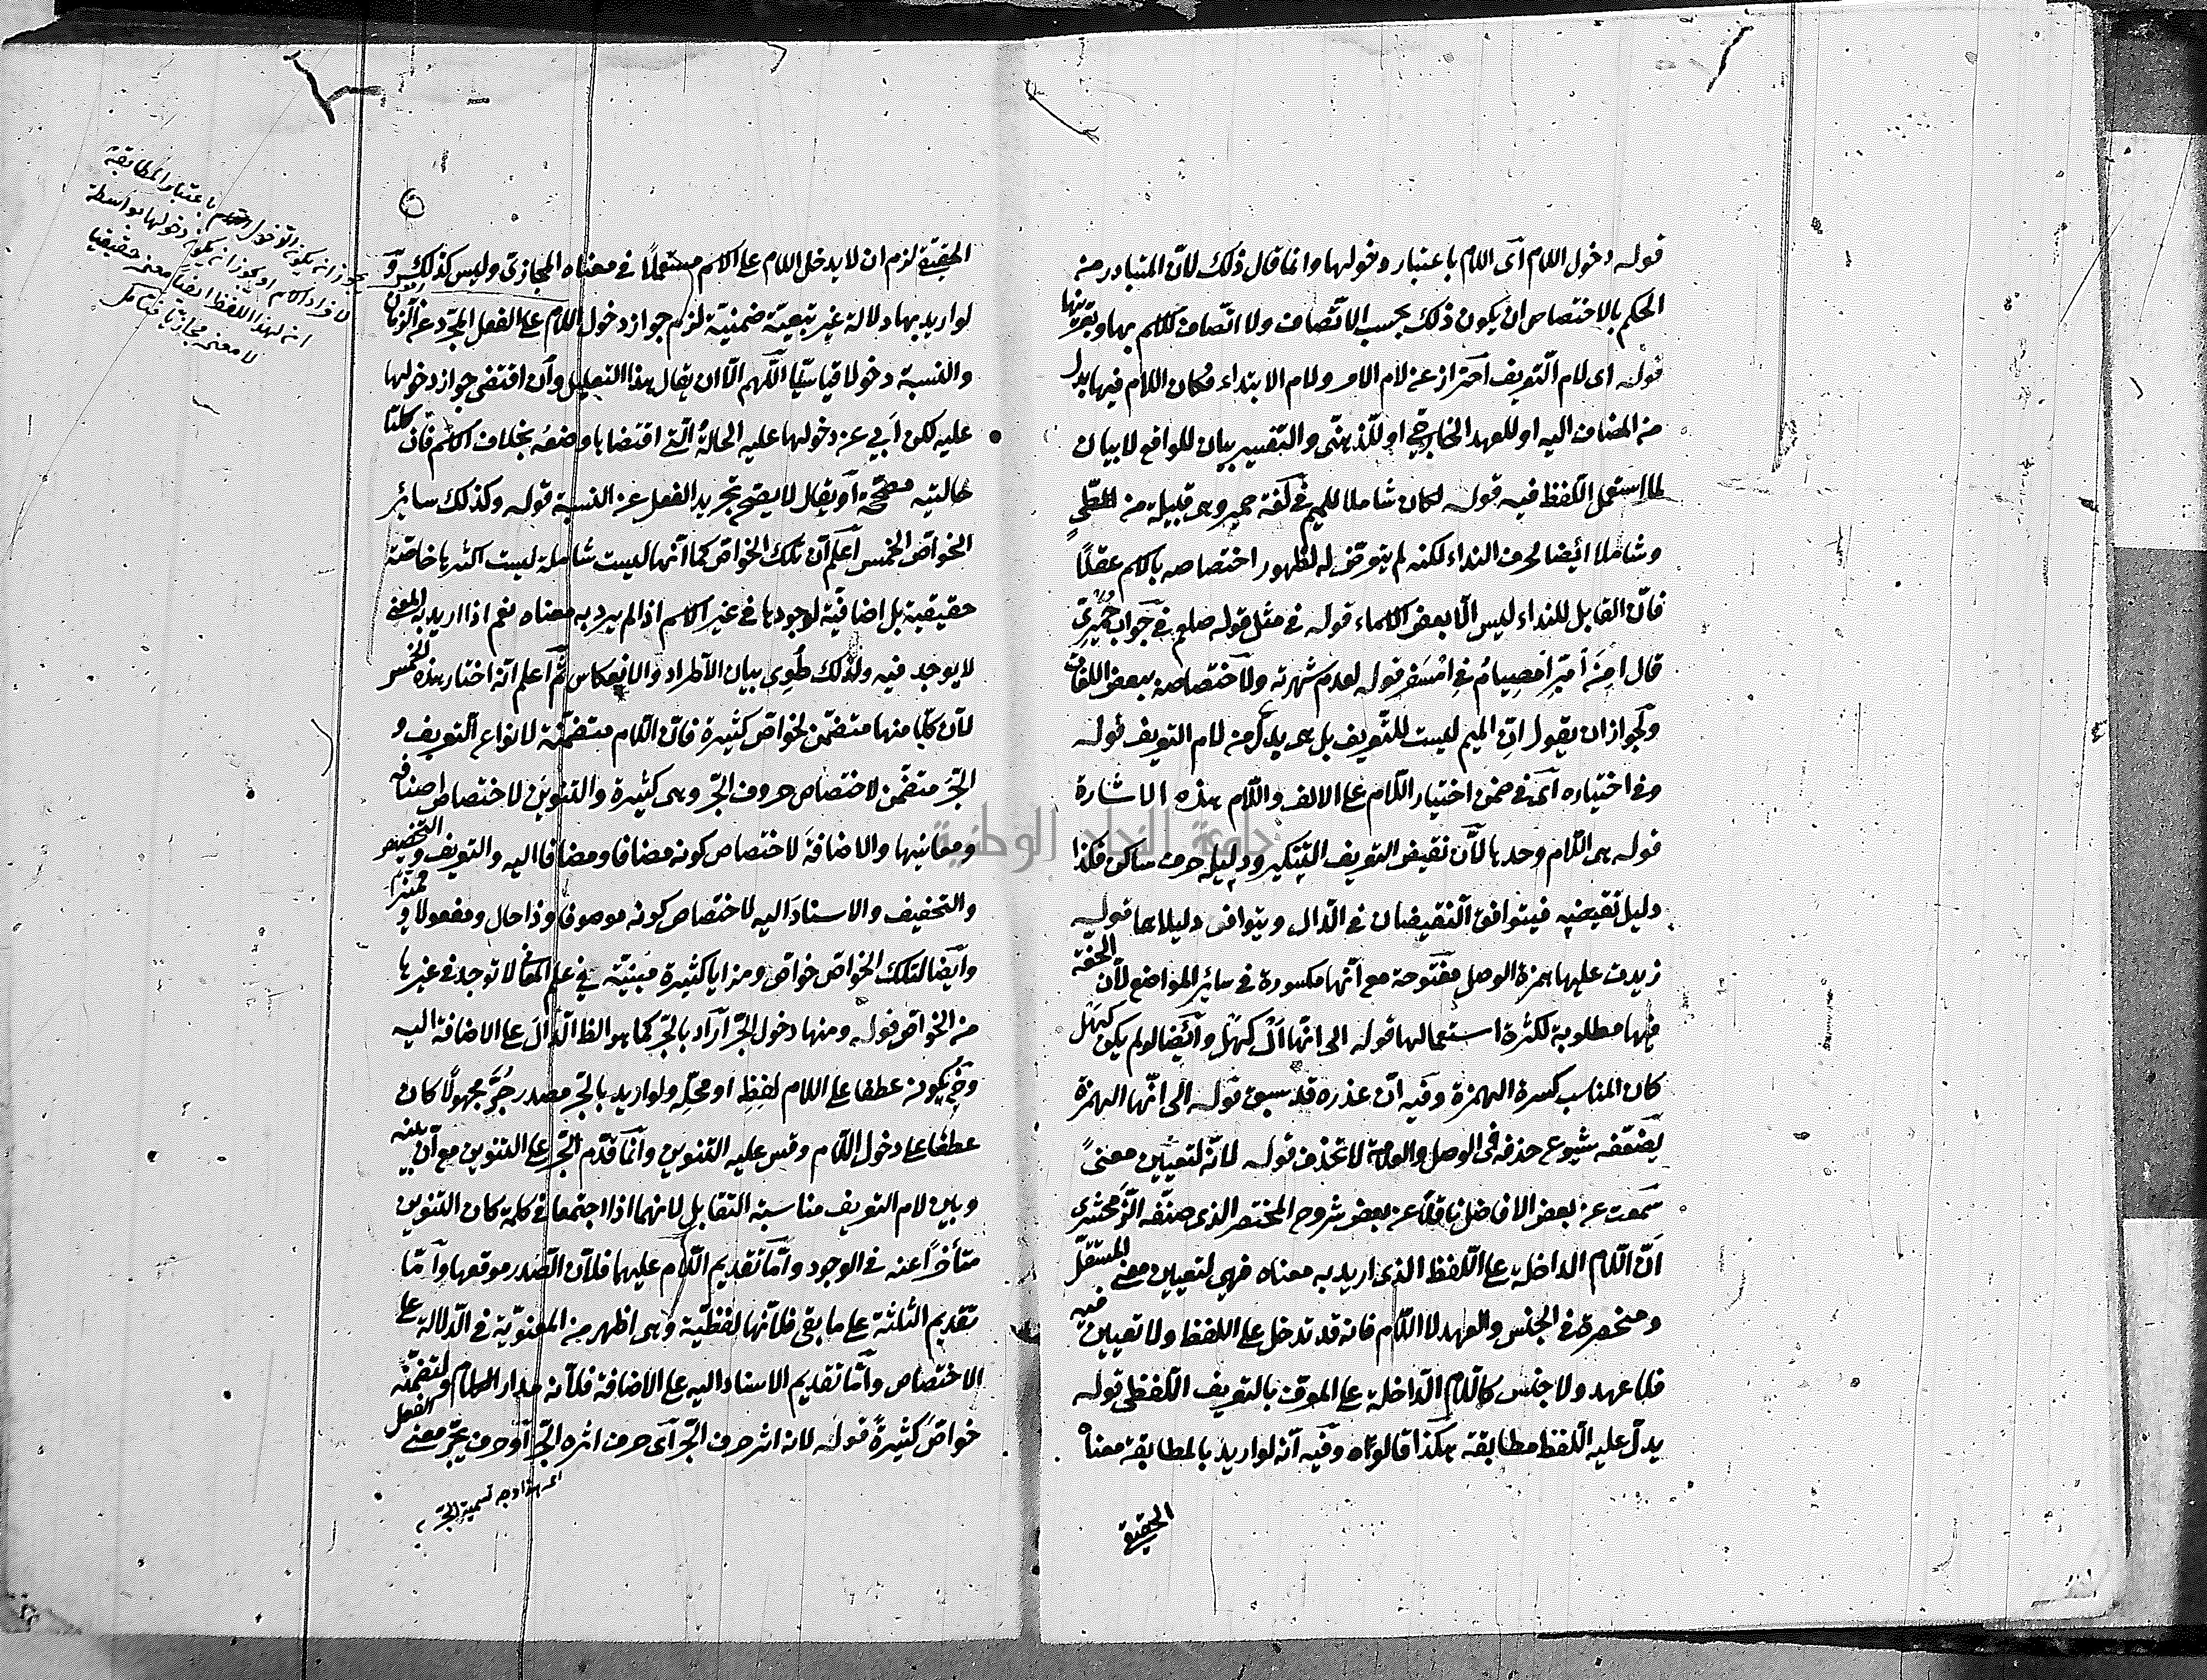 قوله دخول اللام اى اللام باعتبار دخولها وانما قال ذلك لان المتبادر من
الحكم بالاختصاص ان يكون ذلك بحسب الاتصاف ولا اتصاف للاسم بها وبقرينها
قوله اى لام التعريف احتراز عن لام الامر ولام الابتداء فكان اللام فيها بدل
من المضاف اليه او للعهد الخارجى او للذهنى والتفسير بيان للواقع لا بيان
لما استعمل اللفظ فيه قوله لكان شاملا للميم فى لغة حمير وهى قبيلة من طى
وشاملا ايضا لحرف النداء لكنه لم يتعرض له لظهور اختصاصه بالاسم عقلا
فان القابل للنداء ليس الا بعض الاسماء قوله فى مثل قوله صلعم فى جواب حميرى
قال امن امبر امصيام فى امسفر قوله لعدم شهرته ولاختصاصه ببعض اللغات
ولجواز ان يقول ان الميم ليست للتعريف بل هى بدل من لام التعريف قوله
وفى اختياره اى فى ضمن اختيار اللام على الالف واللام هذه الاشارة
قوله هى اللام وحدها لان نقيض التعريف التنكير ودليله حرف ساكن فكذا
دليل نقيضه فيتوافق النقيضان فى الدال ويتوافق دليلاهما قوله
زيدت عليها همزة الوصل مفتوحة مع انها مكسورة فى سائر المواضع لان الخفة
فيها مطلوبة لكثرة استعمالها قوله الى انها ال كهل وايضا لو لم يكن كهل
كان المناسب كسرة الهمزة وفيه ان عذره قد سبق قوله الى انها الهمزة
يضعفه شيوع حذفه فى الوصل والعلامة لا تحذف قوله لانه لتعيين معنى
سمعت عن بعض الافاضل ناقلا عن بعض شروح المختصر الذى صنفه الزمخشرى
ان اللام الداخلة على اللفظ الذى اريد به معناه فهى لتعيين معنى المستقل
ومنحصرة فى الجنس والعهد لا اللام فانه قد تدخل على اللفظ ولا تعيين فيه
فلا عهد ولا جنس كاللام الداخلة على المعرف بالتعريف اللفظى قوله
يدل عليه اللفظ مطابقة هكذا قالوا وفيه انه لو اريد بالمطابقة معناه
الحقيقى
الحقيقى لزم ان لا يدخل اللام على الاسم مستعملا فى معناه المجازى وليس كذلك و
لو اريد بها دلالة غير تبعية ضمنية لزم جواز دخول اللام على الفعل المجرد عن الزمان
والنسبة دخولا قياسيا اللهم الا ان يقال هذا التعليل وان اقتضى جواز دخولها
عليه لكن ابى عن دخولها عليه الحالة التى اقتضاها وضعه بخلاف الاسم فان كلتا
حالتيه مصححة او يقال لا يصح تجريد الفعل عن النسبة قوله وكذلك سائر
الخواص الخمس اعلم ان تلك الخواص كما انها ليست شاملة ليست اكثرها خاصة
حقيقية بل اضافية لوجودها فى غير الاسم اذا لم يرد به معناه نعم اذا اريد به المعنى
لا يوجد فيه ولذلك طوى بيان الاطراد والانعكاس ثم اعلم انه اختار هذه الخمس
لان كلا منها متضمن لخواص كثيرة فان اللام متضمنة لانواع التعريف و
الجر متضمن لاختصاص حروف الجر وهى كثيرة والتنوين لاختصاص اصنافه
ومعانيها والاضافة لاختصاص كونه مضافا ومضافا اليه والتعريف والتخصيص
والتخفيف والاسناد اليه لاختصاص كونه موصوفا وذا حال ومفعولا ومميزا
وايضا لتلك الخواص خواص ومزايا كثيرة مبنية فى علم المعانى لا توجد فى غيرها
من الخواص قوله ومنها دخول الجر اراد بالجر كما هو الظ الدال على الاضافة اليه
وح يكون عطفا على اللام لفظه او محله ولو اريد بالجر مصدر جر مجهولا كان
عطفا على دخول اللام وقس عليه التنوين وانما قدم الجر على التنوين مع ان بينه
وبين لام التعريف مناسبة التقابل لانهما اذا اجتمعا فى كلمة كان التنوين
متأخرا عنه فى الوجود واما تقديم اللام عليهما فلان الصدر موقعها واما
تقديم الثلثة على ما بقى فلانها لفظية وهى اظهر من المعنوية فى الدلالة على
الاختصاص واما تقديم الاسناد اليه على الاضافة فلانه مدار الكلام ولتضمنه
خواص كثيرة قوله لانه اثر حرف الجر اى حرف اثره الجر او حرف يجر معنى الفعل
يجوز ان يكون الدخول باعتبار المطابقة
لافراد الاسم او يجوز ان يكون دخولها بواسطة
ان لهذا اللفظ ايضا معنى حقيقيا
لا معنى مجازيا فتامل
هذا وجه تسمية الجر
جامعة النجاح الوطنية